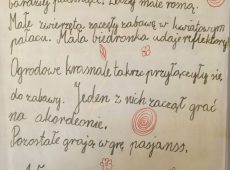 bardziej pachnące. Leczą małe rosną.
Małe zwierzęta zaczęły zabawę w kwiatowym
pałacu. Mała biedronka udaje reflektory.
Ogrodowe krasnale także przyłączyły się
do zabawy. Jeden z nich zaczął grać
na akordeonie.
Pozostałe grają w grę pasjans.